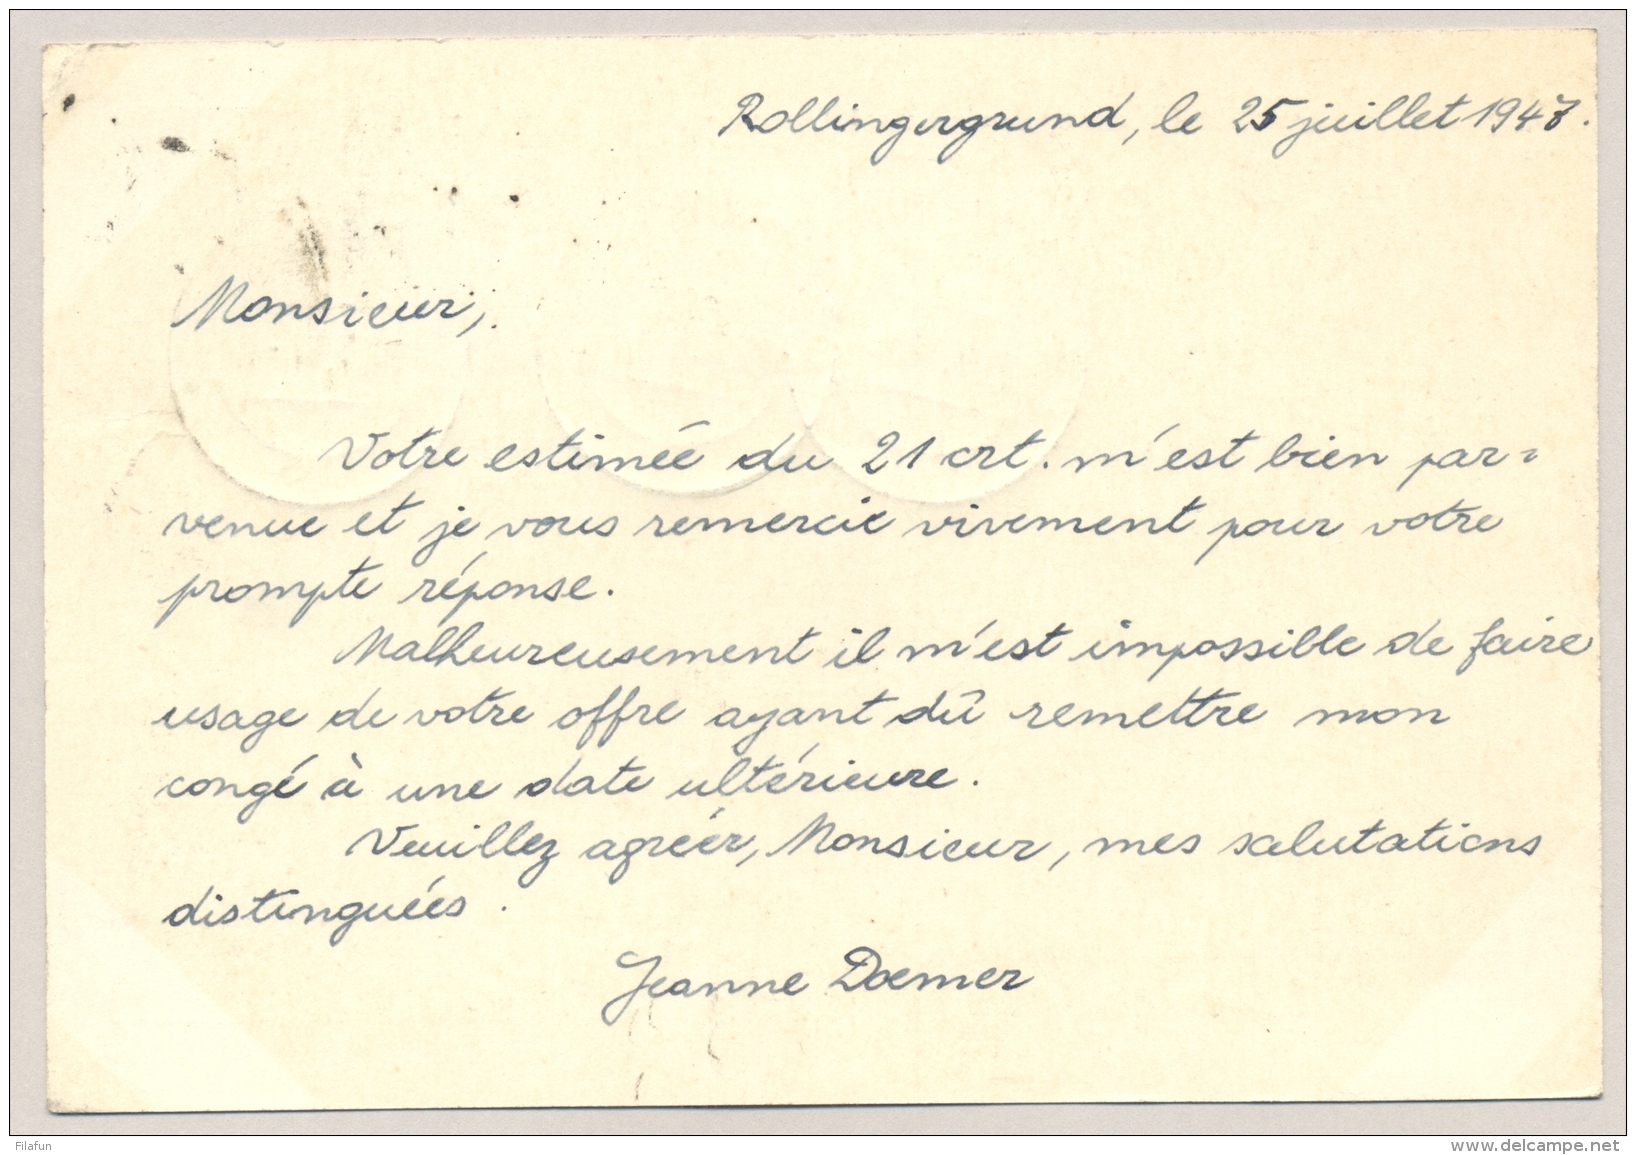 Rollingergrund, le 25 juillet 1947.
Monsieur,
Votre estimée du 21 crt. m'est bien par-
venue et je vous remercie vivement pour votre
prompte réponse.
Malheureusement il m'est impossible de faire
usage de votre offre ayant dû remettre mon
congé à une date ultérieure.
Veuillez agréer, Monsieur, mes salutations
distinguées.
Jeanne Doemer
Filafun
www.delcampe.net